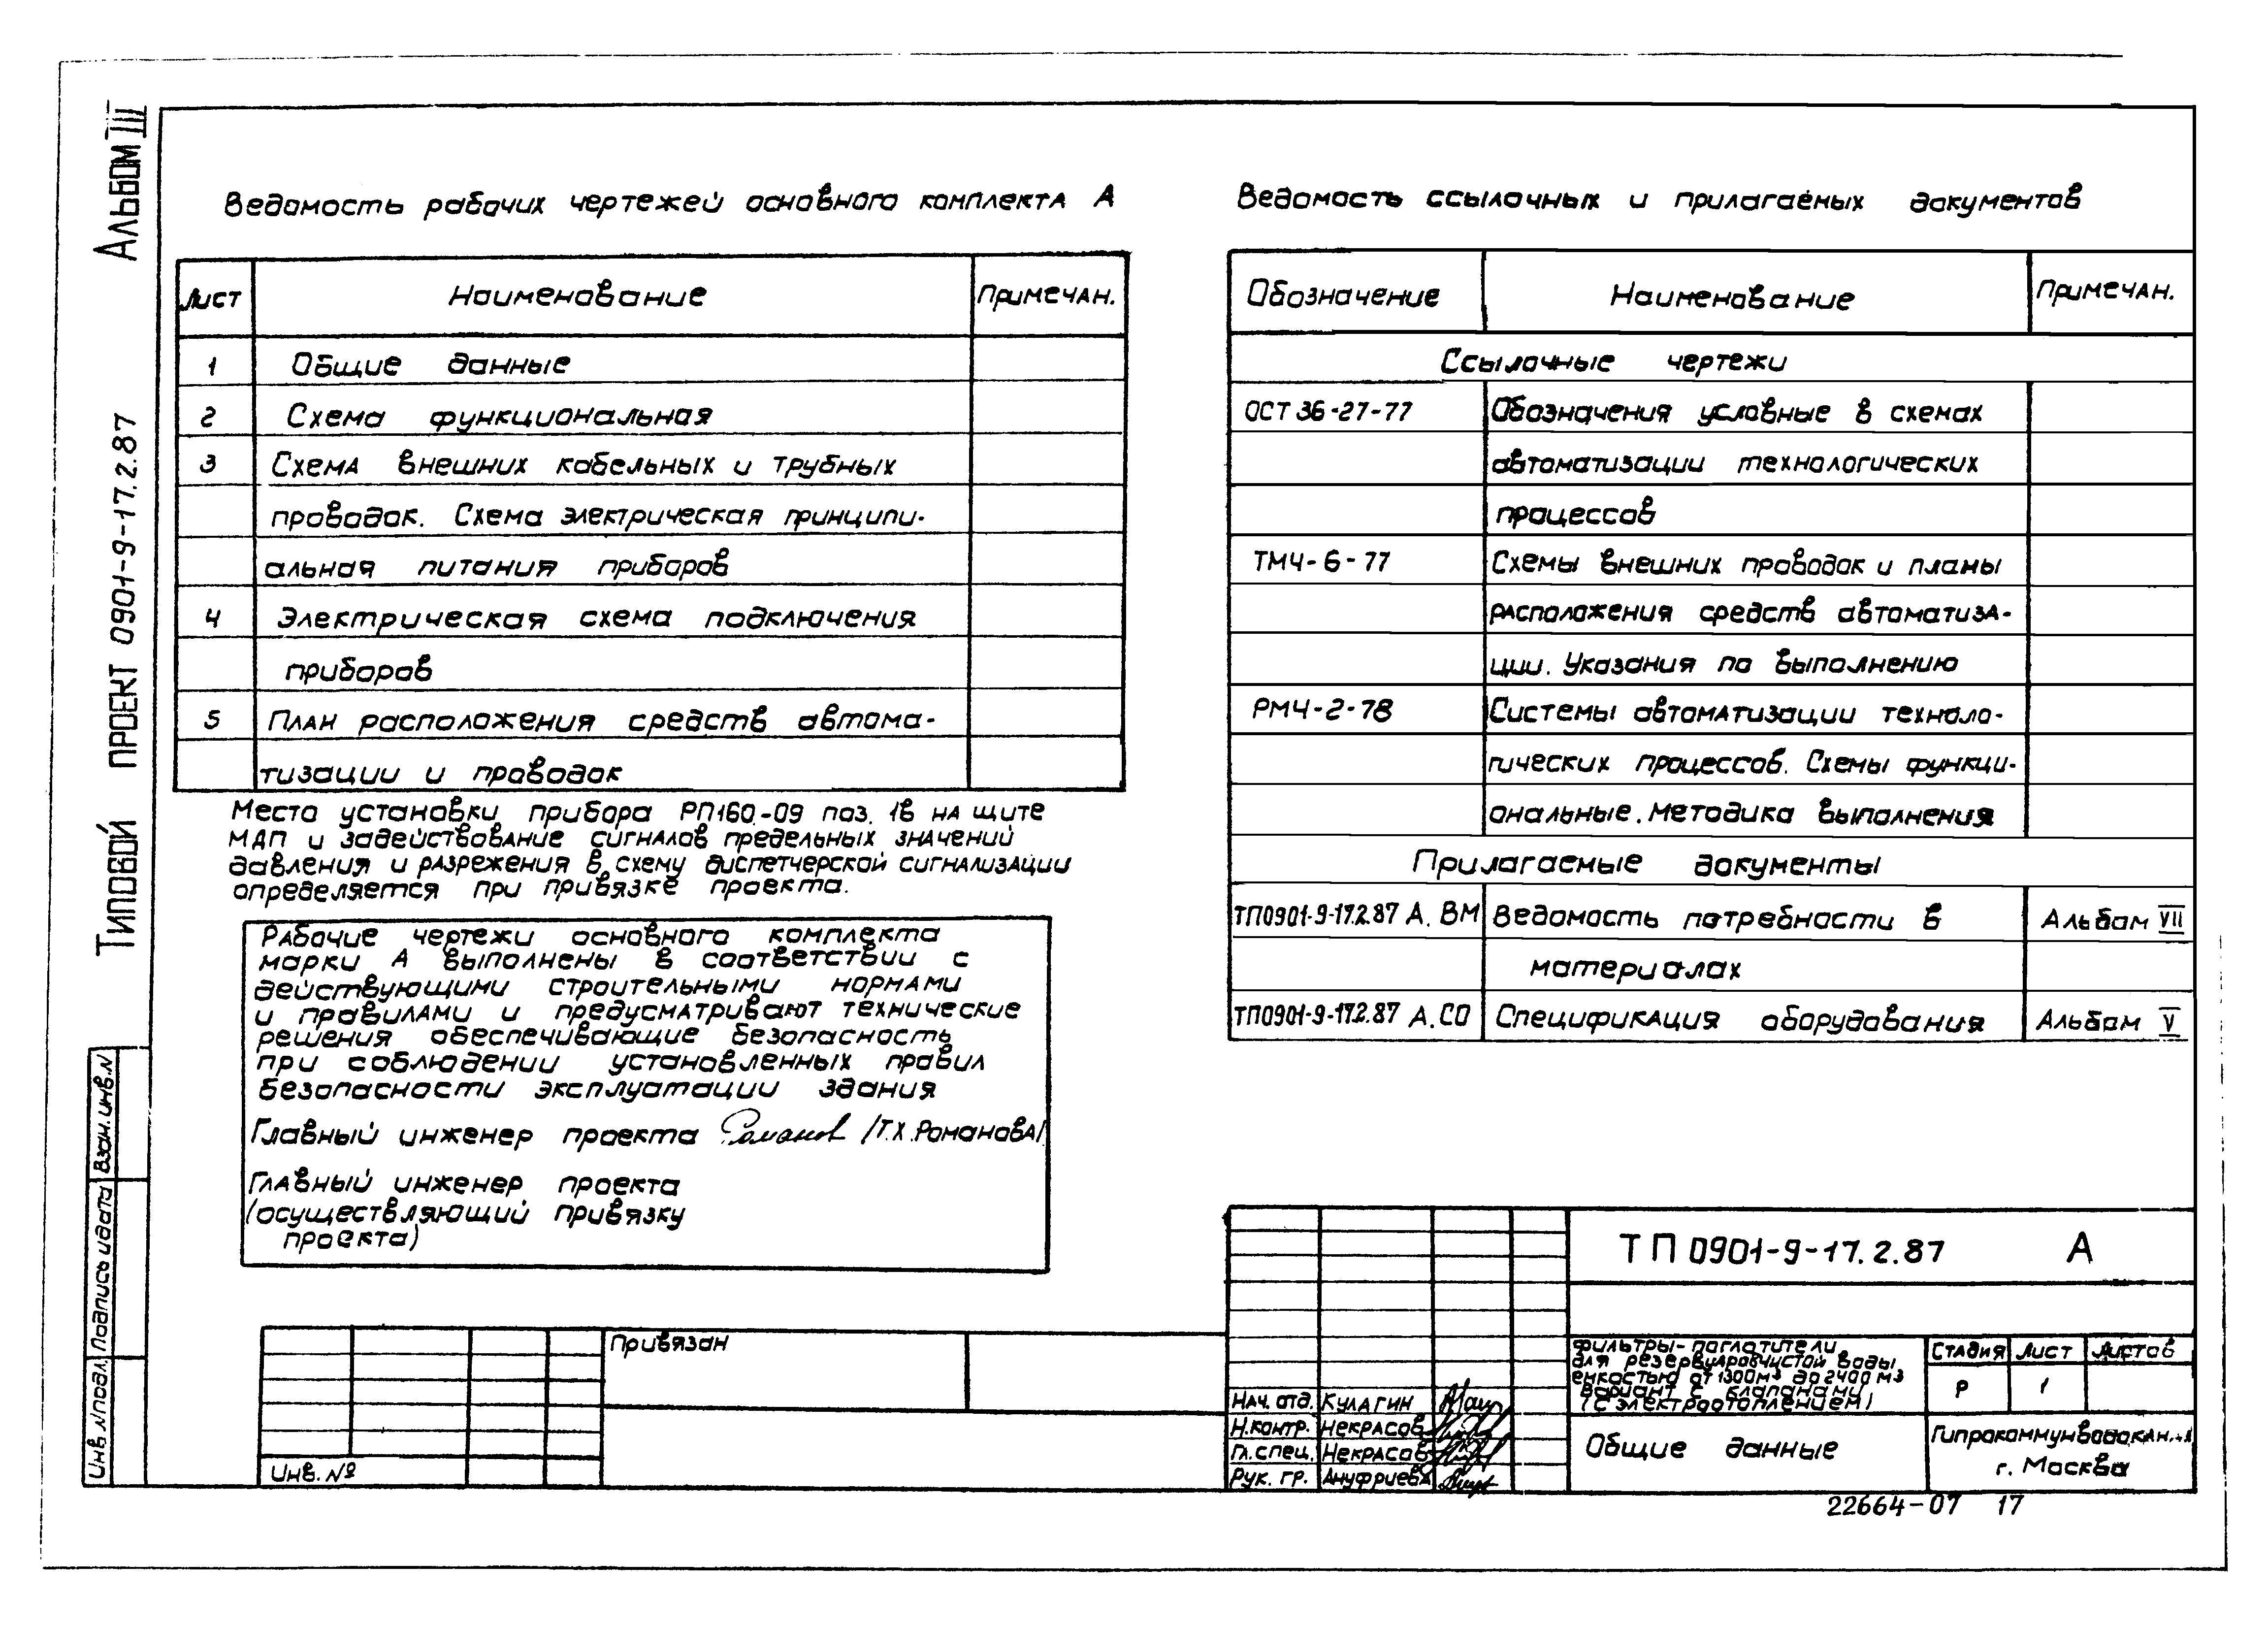 Альбом III
Типовой проект 0901-9-17.2.87
Взам. инв. N
Подпись и дата
Инв. N подл.
Ведомость рабочих чертежей основного комплекта А
Лист Наименование Примечан.
1 Общие данные
2 Схема функциональная
3 Схема внешних кабельных и трубных
проводок. Схема электрическая принципи-
альная питания приборов
4 Электрическая схема подключения
приборов
5 План расположения средств автома-
тизации и проводок
Место установки прибора РП160-09 поз. 1в на щите
МДП и задействование сигналов предельных значений
давления и разрежения в схему диспетчерской сигнализации
определяется при привязке проекта.
Рабочие чертежи основного комплекта
марки А выполнены в соответствии с
действующими строительными нормами
и правилами и предусматривают технические
решения обеспечивающие безопасность
при соблюдении установленных правил
безопасности эксплуатации здания
Главный инженер проекта /Т.Х. Романова/
Главный инженер проекта
(осуществляющий привязку
проекта)
Ведомость ссылочных и прилагаемых документов
Обозначение Наименование Примечан.
Ссылочные чертежи
ОСТ 36-27-77 Обозначения условные в схемах
автоматизации технологических
процессов
ТМ4-6-77 Схемы внешних проводок и планы
расположения средств автоматиза-
ции. Указания по выполнению
РМ4-2-78 Системы автоматизации техноло-
гических процессов. Схемы функци-
ональные. Методика выполнения
Прилагаемые документы
ТП0901-9-17.2.87 А. ВМ Ведомость потребности в Альбом VII
материалах
ТП0901-9-17.2.87 А.СО Спецификация оборудования Альбом V
Привязан
Инв. №
ТП 0901-9-17.2.87 А
Фильтры-поглотители
для резервуаров чистой воды
емкостью от 1300м3 до 2400 м3
Вариант с клапанами
(с электроотоплением)
Стадия Лист Листов
Р 1
Нач. отд. Кулагин
Н.контр. Некрасов
Гл. спец. Некрасов
Рук. гр. Ануфриева
Общие данные
Гипрокоммунводокан.
г. Москва
22664-07 17